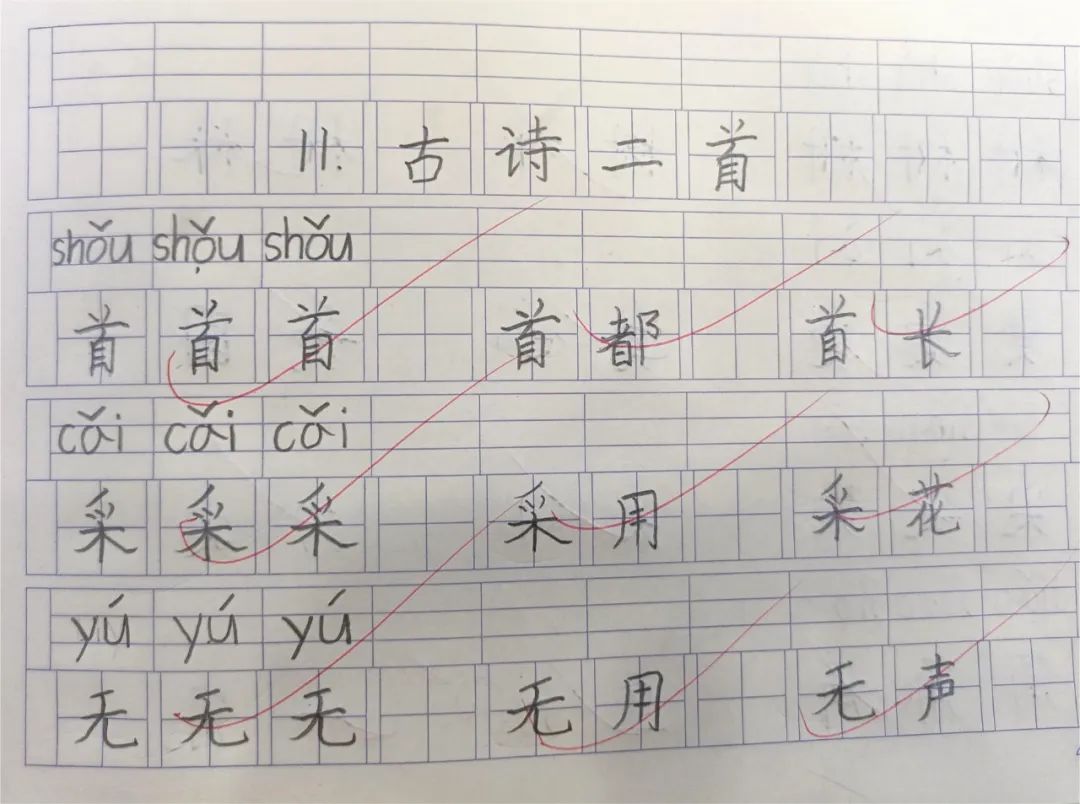 11. 古诗二首
shǒu shǒu shǒu
首 首 首 首都 首长
cǎi cǎi cǎi
采 采 采 采用 采花
yú yú yú
无 无 无 无用 无声